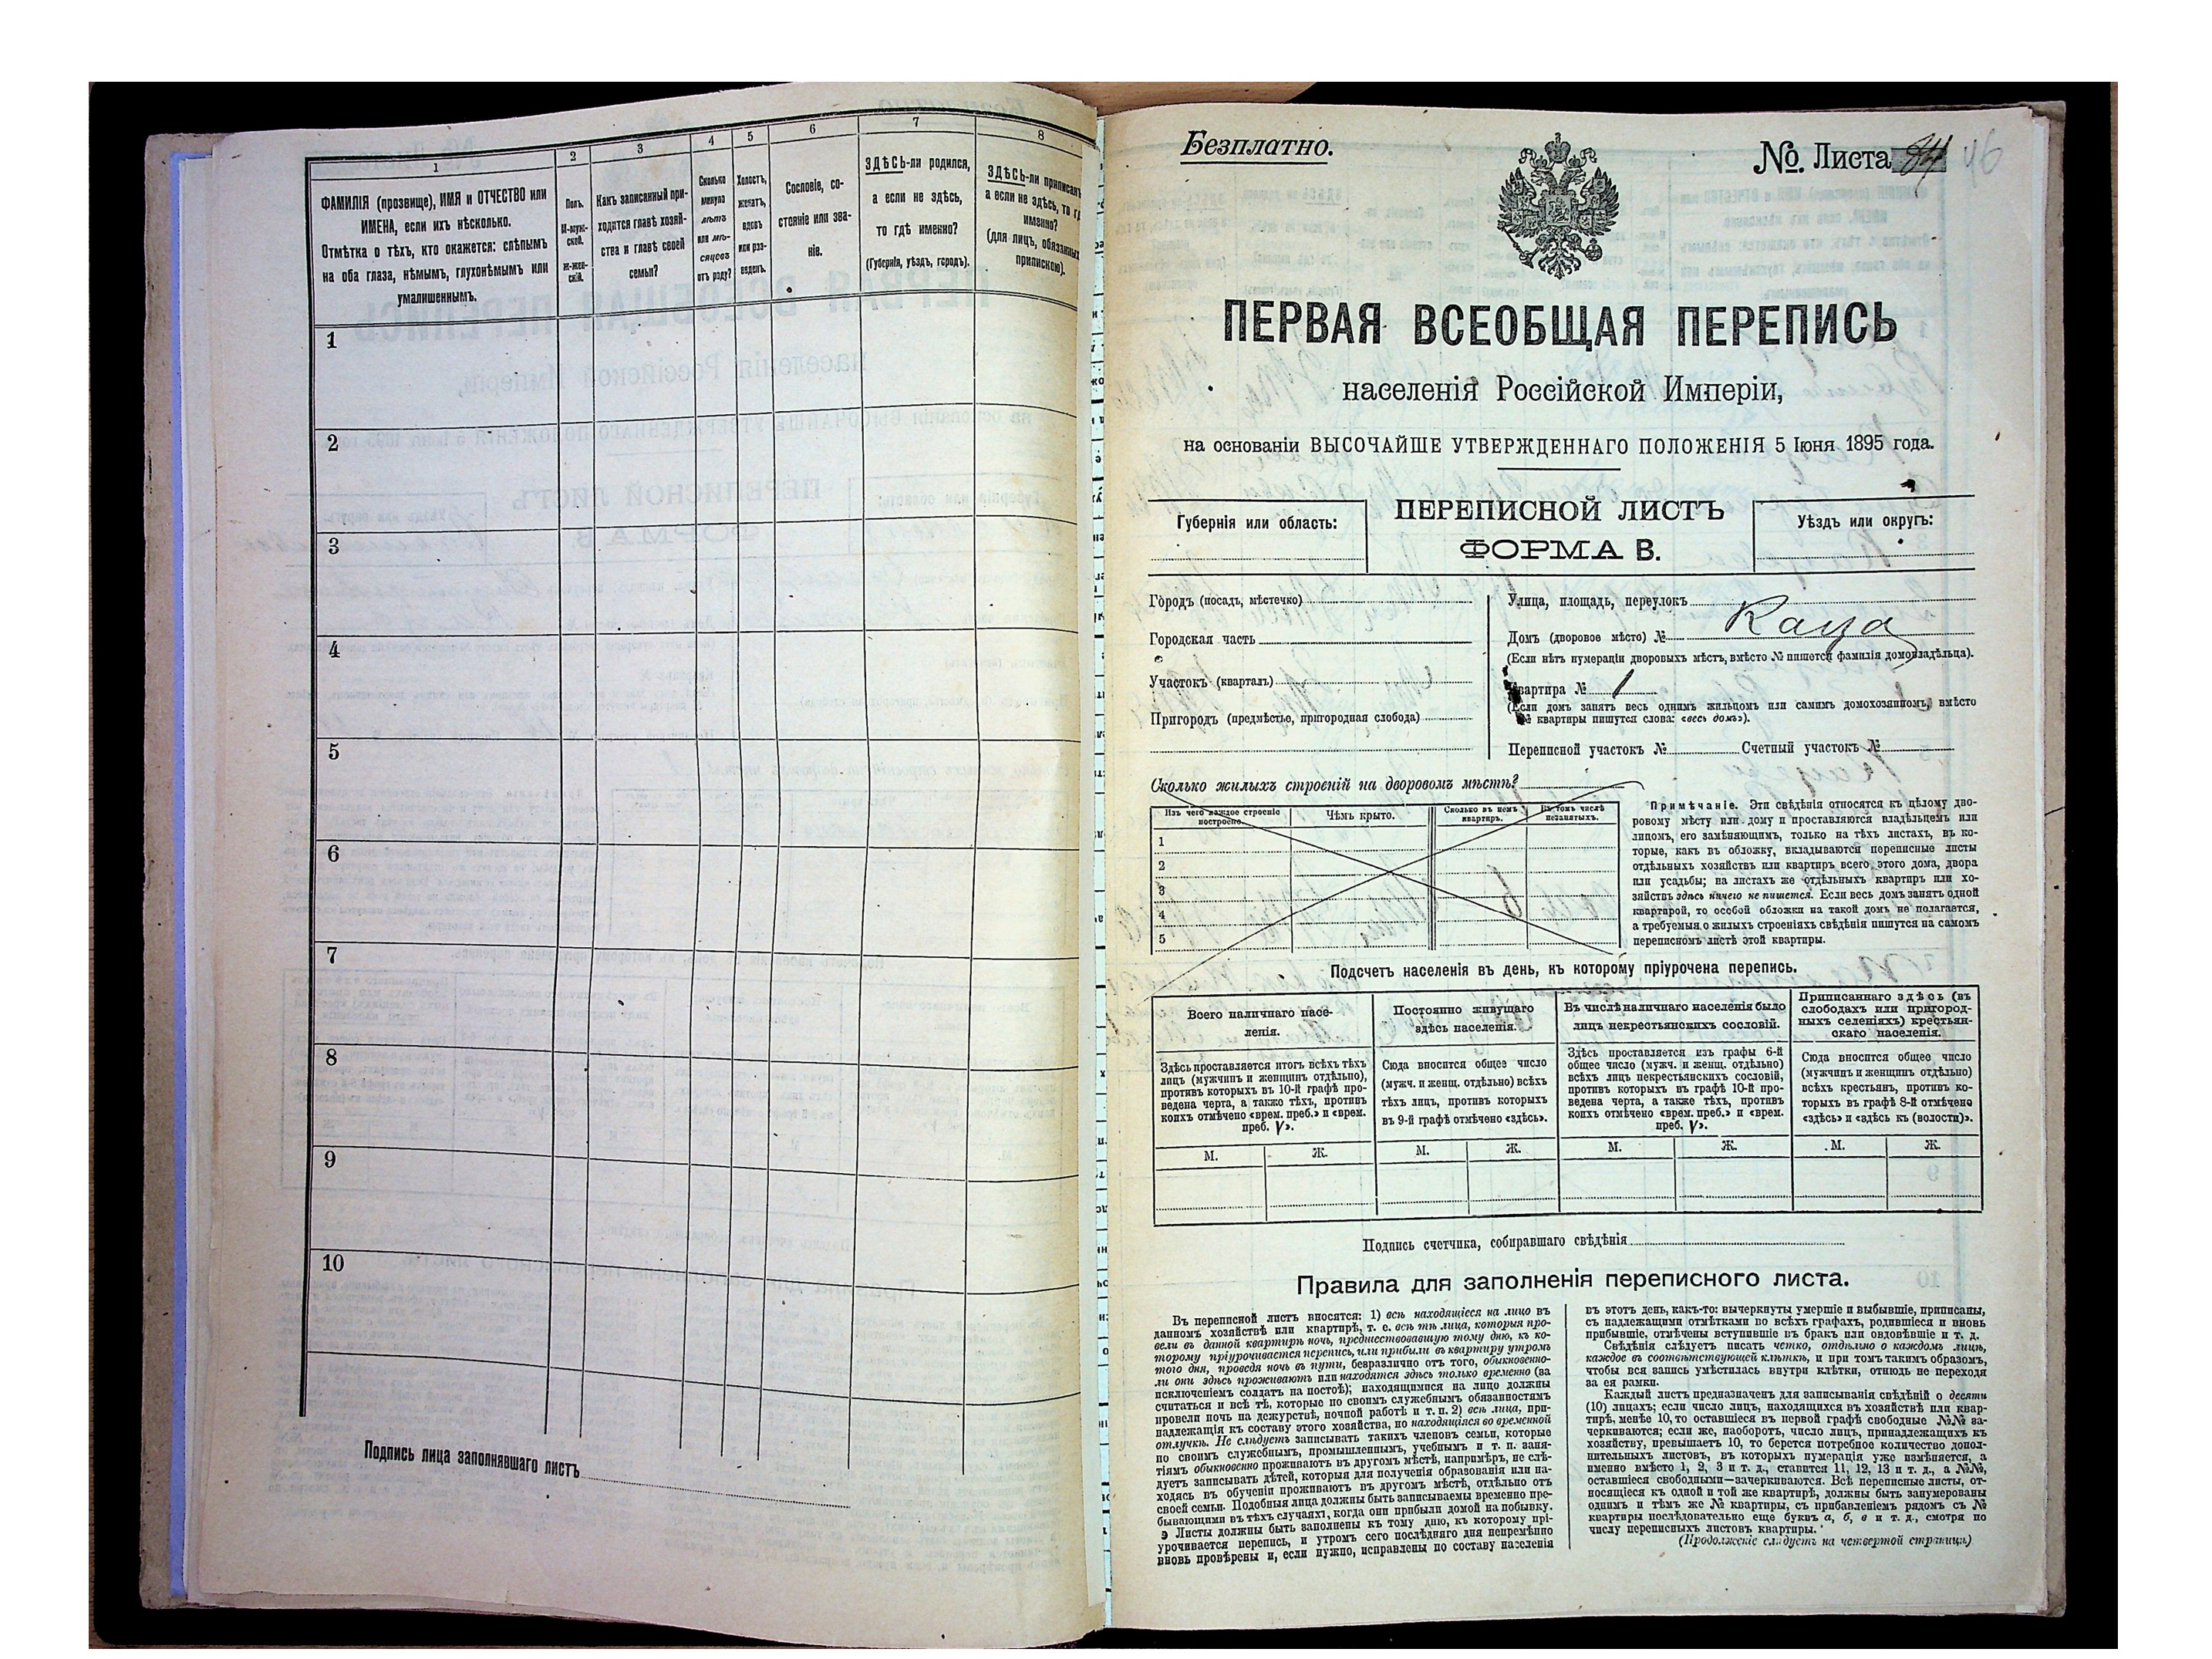 1
2
3
4
5
6
7
8
ФАМИЛІЯ (прозвище), ИМЯ и ОТЧЕСТВО или
ИМЕНА, если ихъ нѣсколько.
Отмѣтка о тѣхъ, кто окажется: слѣпымъ
на оба глаза, нѣмымъ, глухонѣмымъ или
умалишеннымъ.
Полъ.
М-муж-
ской.
Ж-жен-
скій.
Какъ записанный при-
ходится главѣ хозяй-
ства и главѣ своей
семьи?
Сколько
минуло
лѣтъ
или мѣ-
сяцевъ
отъ роду?
Холостъ,
женатъ,
вдовъ
или раз-
веденъ.
Сословіе, со-
стояніе или зва-
ніе.
ЗДѢСЬ-ли родился,
а если не здѣсь,
то гдѣ именно?
(Губернія, уѣздъ, городъ).
ЗДѢСЬ-ли приписанъ
а если не здѣсь, то гд
именно?
(для лицъ, обязанныхъ
припискою).
1
2
3
4
5
6
7
8
9
10
Подпись лица заполнявшаго листъ
Безплатно.
№. Листа 84 46
ПЕРВАЯ ВСЕОБЩАЯ ПЕРЕПИСЬ
населенія Россійской Имперіи,
на основаніи ВЫСОЧАЙШЕ УТВЕРЖДЕННАГО ПОЛОЖЕНІЯ 5 Іюня 1895 года.
Губернія или область:
ПЕРЕПИСНОЙ ЛИСТЪ
ФОРМА В.
Уѣздъ или округъ:
Городъ (посадъ, мѣстечко)
Городская часть
Участокъ (кварталъ)
Пригородъ (предмѣстье, пригородная слобода)
Улица, площадь, переулокъ
Домъ (дворовое мѣсто) № Каца
(Если нѣтъ нумераціи дворовыхъ мѣстъ, вмѣсто № пишется фамилія домовладѣльца).
Квартира № 1
(Если домъ занятъ весь однимъ жильцомъ или самимъ домохозяиномъ, вмѣсто
№ квартиры пишутся слова: «весь домъ»).
Переписной участокъ № Счетный участокъ №
Сколько жилыхъ строеній на дворовомъ мѣстѣ?
Изъ чего каждое строеніе
построено.
Чѣмъ крыто.
Сколько въ немъ
квартиръ.
Въ томъ числѣ
незанятыхъ.
1
2
3
4
5
Примѣчаніе. Эти свѣдѣнія относятся къ цѣлому дво-
ровому мѣсту или дому и проставляются владѣльцемъ или
лицомъ, его замѣняющимъ, только на тѣхъ листахъ, въ ко-
торые, какъ въ обложку, вкладываются переписные листы
отдѣльныхъ хозяйствъ или квартиръ всего этого дома, двора
или усадьбы; на листахъ же отдѣльныхъ квартиръ или хо-
зяйствъ здѣсь ничего не пишется. Если весь домъ занятъ одной
квартирой, то особой обложки на такой домъ не полагается,
а требуемыя о жилыхъ строеніяхъ свѣдѣнія пишутся на самомъ
переписномъ листѣ этой квартиры.
Подсчетъ населенія въ день, къ которому пріурочена перепись.
Всего наличнаго насе-
ленія.
Здѣсь проставляется итогъ всѣхъ тѣхъ
лицъ (мужчинъ и женщинъ отдѣльно),
противъ которыхъ въ 10-й графѣ про-
ведена черта, а также тѣхъ, противъ
коихъ отмѣчено «врем. преб.» и «врем.
преб. V».
Постоянно живущаго
здѣсь населенія.
Сюда вносится общее число
(мужч. и женщ. отдѣльно) всѣхъ
тѣхъ лицъ, противъ которыхъ
въ 9-й графѣ отмѣчено «здѣсь».
Въ числѣ наличнаго населенія было
лицъ некрестьянскихъ сословій.
Здѣсь проставляется изъ графы 6-й
общее число (мужч. и женщ. отдѣльно)
всѣхъ лицъ некрестьянскихъ сословій,
противъ которыхъ въ графѣ 10-й про-
ведена черта, а также тѣхъ, противъ
коихъ отмѣчено «врем. преб.» и «врем.
преб. V».
Приписаннаго здѣсь (въ
слободахъ или пригород-
ныхъ селеніяхъ) крестьян-
скаго населенія.
Сюда вносится общее число
(мужчинъ и женщинъ отдѣльно)
всѣхъ крестьянъ, противъ ко-
торыхъ въ графѣ 8-й отмѣчено
«здѣсь» и «здѣсь къ (волости)».
М. Ж. М. Ж. М. Ж. М. Ж.
Подпись счетчика, собиравшаго свѣдѣнія
Правила для заполненія переписного листа.
Въ переписной листъ вносятся: 1) всѣ находящіеся на лицо въ
данномъ хозяйствѣ или квартирѣ, т. е. всѣ тѣ лица, которыя про-
вели въ данной квартирѣ ночь, предшествовавшую тому дню, къ ко-
торому пріурочивается перепись, или прибыли въ квартиру утромъ
того дня, проведя ночь въ пути, безразлично отъ того, обыкновенно-
ли они здѣсь проживаютъ или находятся здѣсь только временно (за
исключеніемъ солдатъ на постоѣ); находящимися на лицо должны
считаться и всѣ тѣ, которые по своимъ служебнымъ обязанностямъ
провели ночь на дежурствѣ, ночной работѣ и т. п. 2) всѣ лица, при-
надлежащія къ составу этого хозяйства, но находящіяся во временной
отлучкѣ. Не слѣдуетъ записывать такихъ членовъ семьи, которые
по своимъ служебнымъ, промышленнымъ, учебнымъ и т. п. заня-
тіямъ обыкновенно проживаютъ въ другомъ мѣстѣ, напримѣръ, не слѣ-
дуетъ записывать дѣтей, которыя для полученія образованія или на-
ходясь въ обученіи проживаютъ въ другомъ мѣстѣ, отдѣльно отъ
своей семьи. Подобныя лица должны быть записываемы временно пре-
бывающими въ тѣхъ случаяхъ, когда они прибыли домой на побывку.
Листы должны быть заполнены къ тому дню, къ которому прі-
урочивается перепись, и утромъ сего послѣдняго дня непремѣнно
вновь провѣрены и, если нужно, исправлены по составу населенія
въ этотъ день, какъ-то: вычеркнуты умершіе и выбывшіе, приписаны,
съ надлежащими отмѣтками во всѣхъ графахъ, родившіеся и вновь
прибывшіе, отмѣчены вступившіе въ бракъ или овдовѣвшіе и т. д.
Свѣдѣнія слѣдуетъ писать четко, отдѣльно о каждомъ лицѣ,
каждое въ соотвѣтствующей клѣткѣ, и при томъ такимъ образомъ,
чтобы вся запись умѣстилась внутри клѣтки, отнюдь не переходя
за ея рамки.
Каждый листъ предназначенъ для записыванія свѣдѣній о десяти
(10) лицахъ; если число лицъ, находящихся въ хозяйствѣ или квар-
тирѣ, менѣе 10, то оставшіеся въ первой графѣ свободные №№ за-
черкиваются; если же, наоборотъ, число лицъ, принадлежащихъ къ
хозяйству, превышаетъ 10, то берется потребное количество допол-
нительныхъ листовъ, въ которыхъ нумерація уже измѣняется, а
именно вмѣсто 1, 2, 3 и т. д., ставится 11, 12, 13 и т. д., а №№,
оставшіеся свободными—зачеркиваются. Всѣ переписные листы, от-
носящіеся къ одной и той же квартирѣ, должны быть занумерованы
однимъ и тѣмъ же № квартиры, съ прибавленіемъ рядомъ съ №
квартиры послѣдовательно еще буквъ а, б, в и т. д., смотря по
числу переписныхъ листовъ квартиры.
(Продолженіе слѣдуетъ на четвертой страницѣ)